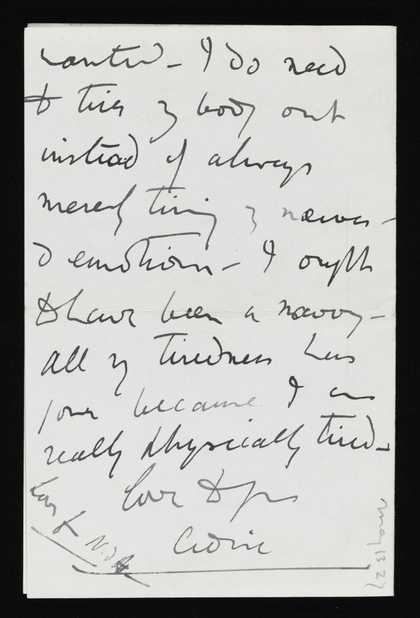 wanted – I do need
to tire my body out
instead of always
merely tiring my nerves –
& emotions – I ought
to have been a navvy –
all my tiredness has
gone because I am
really physically tired –
love to you
Cedric
Love to